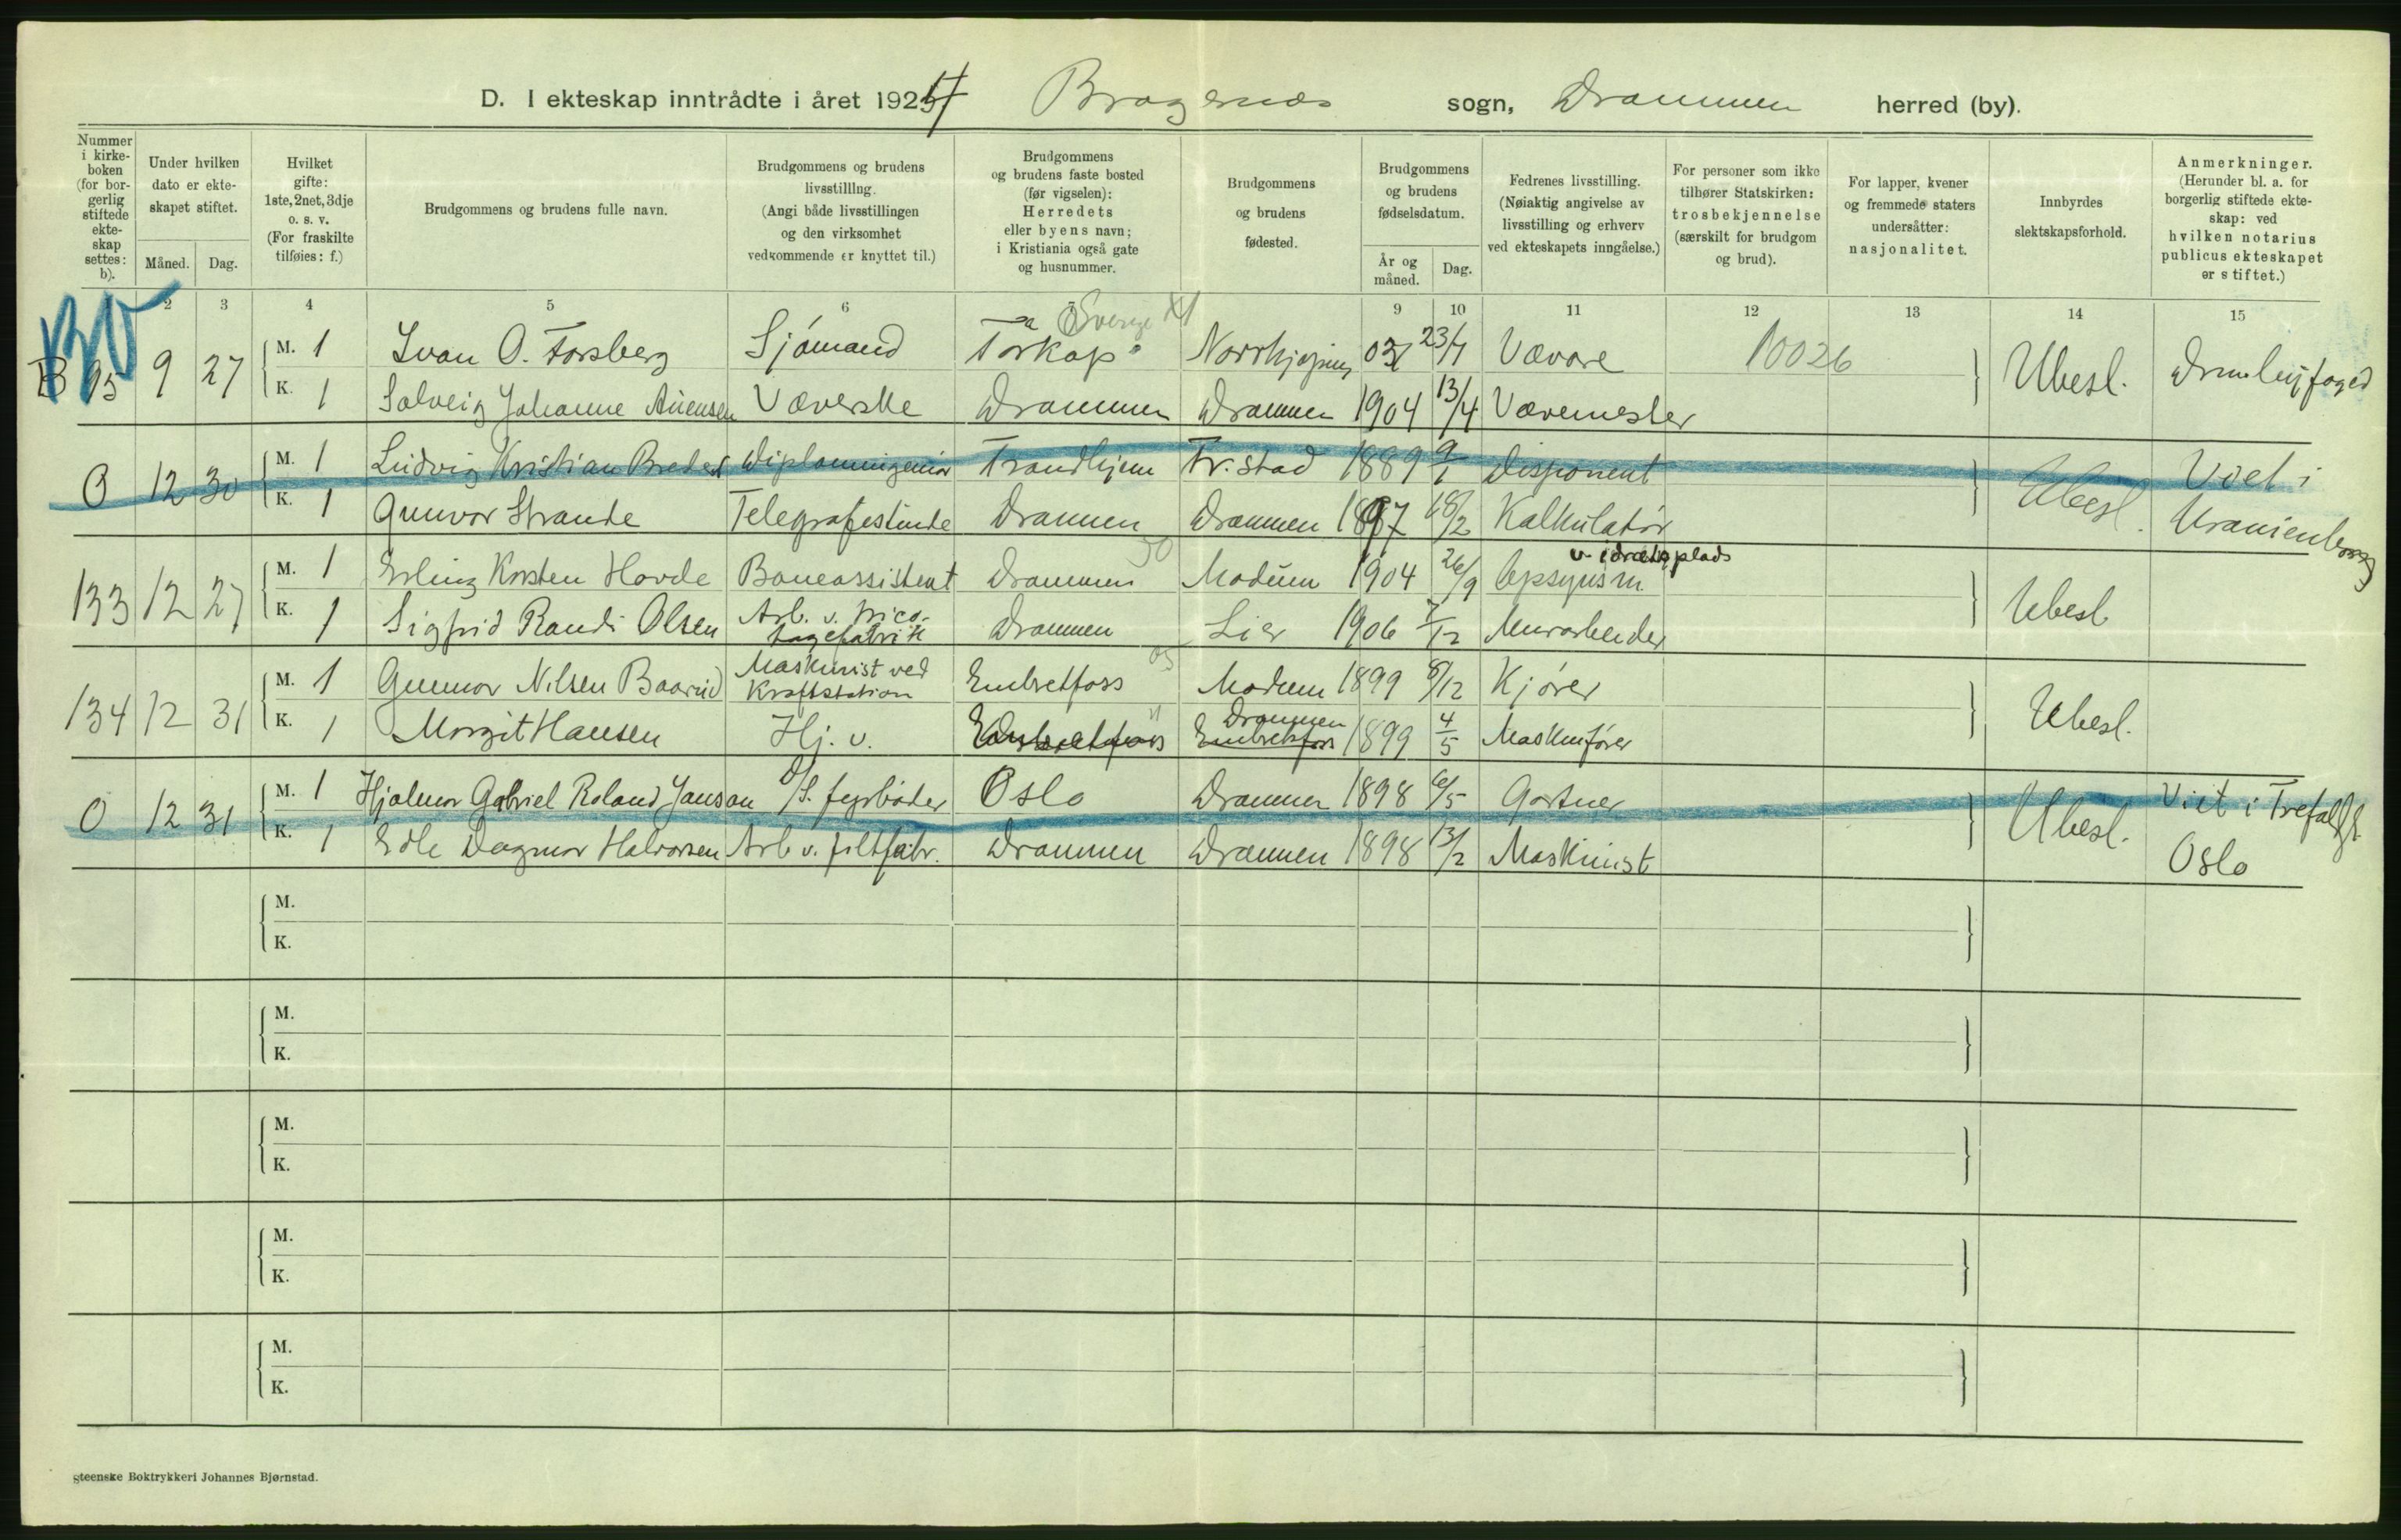 D. I ekteskap inntrådte i året 192 Bragernes sogn, Drammen herred (by).
Nummer i kirkeboken (for borgerlig stiftede ekteskap settes: b).
Under hvilken dato er ekteskapet stiftet.
Måned. Dag.
Hvilket gifte: 1ste, 2net, 3dje o. s. v. (For fraskilte tilføies: f.)
Brudgommens og brudens fulle navn.
Brudgommens og brudens livsstilling. (Angi både livsstillingen og den virksomhet vedkommende er knyttet til.)
Brudgommens og brudens faste bosted (før vigselen): Herredets eller byens navn; i Kristiania også gate og husnummer.
Brudgommens og brudens fødested.
Brudgommens og brudens fødselsdatum.
År og måned. Dag.
Fedrenes livsstilling. (Nøiaktig angivelse av livsstilling og erhverv ved ekteskapets inngåelse.)
For personer som ikke tilhører Statskirken: trosbekjennelse (særskilt for brudgom og brud).
For lapper, kvener og fremmede staters undersåtter: nasjonalitet.
Innbyrdes slektskapsforhold.
Anmerkninger. (Herunder bl. a. for borgerlig stiftede ekteskap: ved hvilken notarius publicus ekteskapet er stiftet.)
2 3 4 5 6 9 10 11 12 13 14 15
Sverge
B 95 9 27 M. 1 Ivan O. Forsberg Sjømand Torkop Norrkjøping 03 23/1 Vævare 10026 Ubesl.
K. 1 Solveig Johanne Væverske Drammen Drammen 1904 13/4 Vævemester
O 12 30 M. 1 Ludvig Kristian Diplomingeniør Trondhjem Fr.stad 1889 9/1 Disponent Ubesl. Viet i Uranienborg
K. 1 Gunvor Strande Telegrafistinde Drammen Drammen 1897 18/2 Kalkulatør
30
133 12 27 M. 1 Erling Karsten Hovde Baneassistent Drammen Modum 1904 26/9 Opsynsm. v. idrætsplads Ubesl
K. 1 Sigfrid Randi Olsen Arb. v. Drammen Lier 1906 7/12 Murarbeider
134 12 31 M. 1 Gunnar Nilsen Baarud Maskinist ved Kraftstation Embretfoss Modum 1899 8/12 Kjører Ubesl.
K. 1 Margit Hansen Hj. v. Embretfoss Drammen Embretfoss 1899 4/5 Maskinfører
O 12 31 M. 1 Hjalmar Gabriel Roland Janson D/S. fyrbøder Oslo Drammen 1898 6/5 Gartner Ubesl. Viet i Trefoldgh. Oslo
K. 1 Edle Dagmar Halvorsen Arb v. filtfabr. Drammen Drammen 1898 13/2 Maskinist
M.
K.
M.
K.
M.
K.
M.
K.
M.
K.
Steenske Boktrykkeri Johannes Bjørnstad.